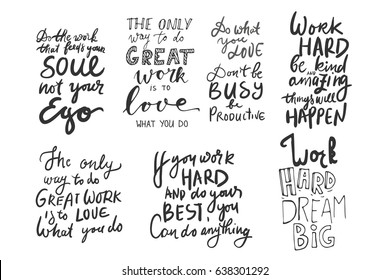 Do the work
that feeds your
SOUL
not your
Ego
THE ONLY
way to do
GREAT
work
IS TO
love
WHAT YOU DO
Do what
you LOVE
Don't be
BUSY
be
PRODUCTIVE
WORK
HARD
be kind
AND
amazing
things will
HAPPEN
The only
way to do
GREAT WORK
is to LOVE
what you do
If you work
HARD
AND do your
BEST, you
Can do anything
Work
HARD
DREAM
BiG
shutterstock.com · 638301292